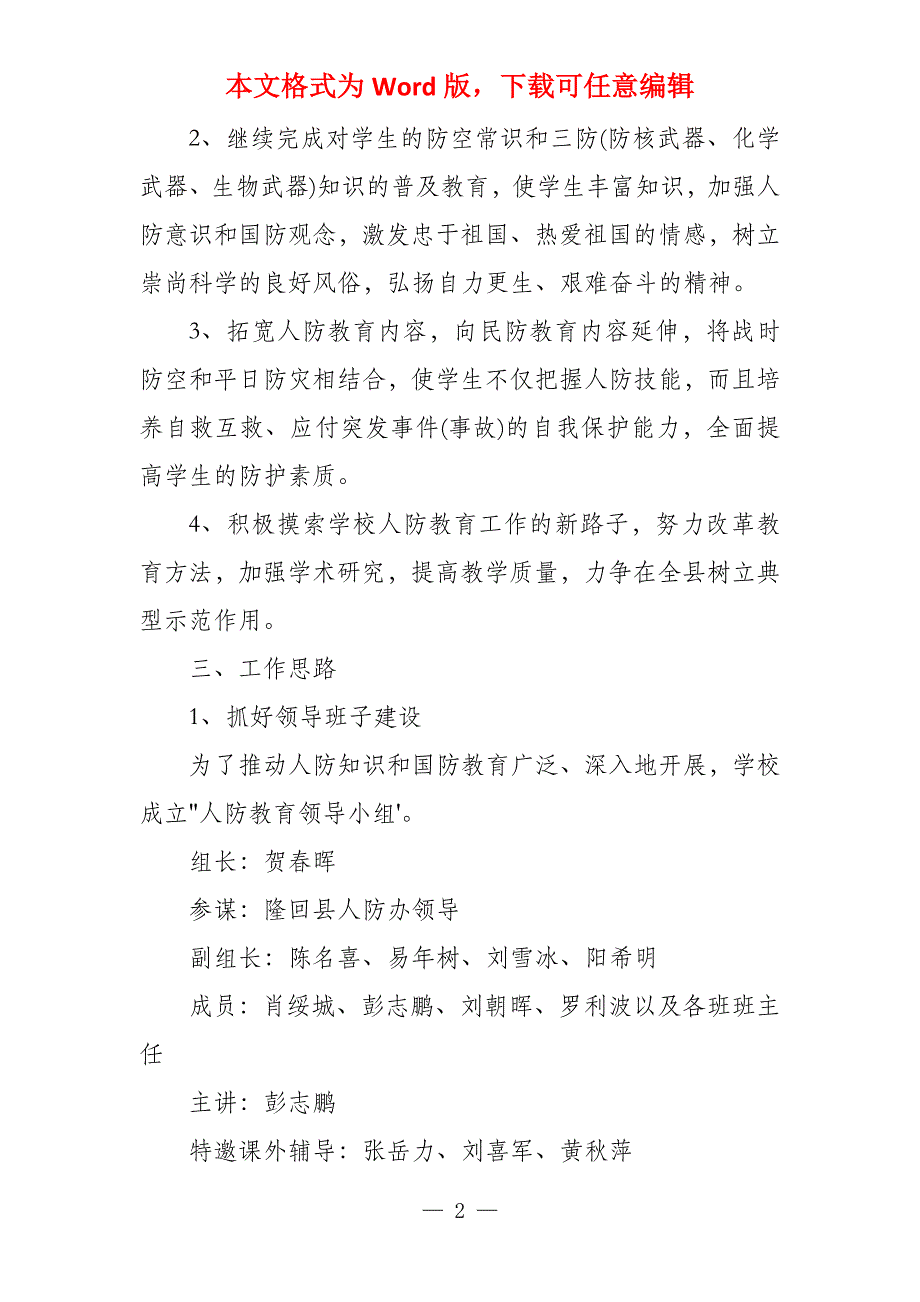 本文格式为 Word 版，下载可任意编辑
2、继续完成对学生的防空常识和三防(防核武器、化学
武器、生物武器)知识的普及教育，使学生丰富知识，加强人
防意识和国防观念，激发忠于祖国、热爱祖国的情感，树立
崇尚科学的良好风俗，弘扬自力更生、艰难奋斗的精神。
3、拓宽人防教育内容，向民防教育内容延伸，将战时
防空和平日防灾相结合，使学生不仅把握人防技能，而且培
养自救互救、应付突发事件(事故)的自我保护能力，全面提
高学生的防护素质。
4、积极摸索学校人防教育工作的新路子，努力改革教
育方法，加强学术研究，提高教学质量，力争在全县树立典
型示范作用。
三、工作思路
1、抓好领导班子建设
为了推动人防知识和国防教育广泛、深入地开展，学校
成立"人防教育领导小组'。
组长：贺春晖
参谋：隆回县人防办领导
副组长：陈名喜、易年树、刘雪冰、阳希明
成员：肖绥城、彭志鹏、刘朝晖、罗利波以及各班班主
任
主讲：彭志鹏
特邀课外辅导：张岳力、刘喜军、黄秋萍
— 2 —